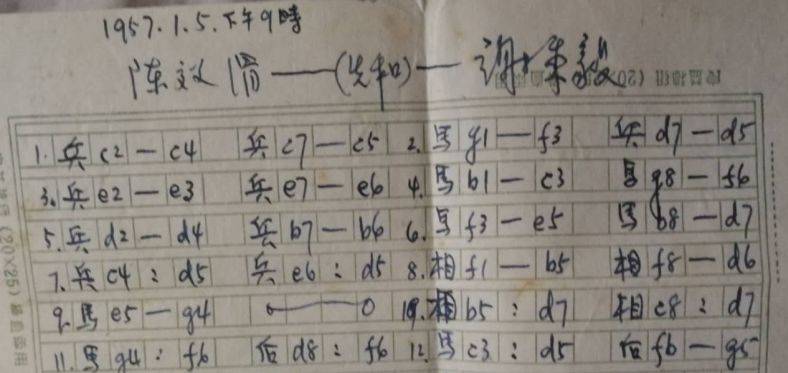 1957.1.5.下午9時
陈文 —(先和)— 谢
1. 兵 c2 — c4 兵 c7 — c5 2. 馬 g1 — f3 兵 d7 — d5
3. 兵 e2 — e3 兵 e7 — e6 4. 馬 b1 — c3 馬 g8 — f6
5. 兵 d2 — d4 兵 b7 — b6 6. 馬 f3 — e5 馬 b8 — d7
7. 兵 c4 : d5 兵 e6 : d5 8. 相 f1 — b5 相 f8 — d6
9. 馬 e5 — g4 0 — 0 10. 相 b5 : d7 相 c8 : d7
11. 馬 g4 : f6 后 d8 : f6 12. 馬 c3 : d5 后 f6 — g5
(20×25)